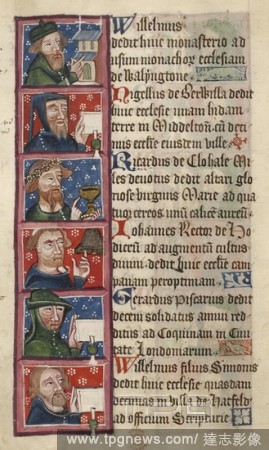 Willelmus
dedit huic monasterio ad
usum monachor ecclesiam
de Walyngtone.
Nigellus de Serwilla dedit
huic ecclesie unam hydam
terre in Middelton cu deci
mis ecclie eiusdem ville.
Ricardus de Clohale Mi
les devotus dedit altari glo
riose virginis Marie ad qua
tuor cereos unu calice aureu.
Johannes Rector de Ho
ad augmentu cultus
divini dedit huic eccle cam
panam peroptimam.
Gerardus Piscarius dedit
decem solidatas annui red
ditus ad Coquinam in Civi
tate Londoniarum.
Willelmus filius Simonis
dedit huic ecclesie quasdam
decimas in villa de Hatfeld
ad officium Scriptorie
www.tpgnews.com / 達志影像